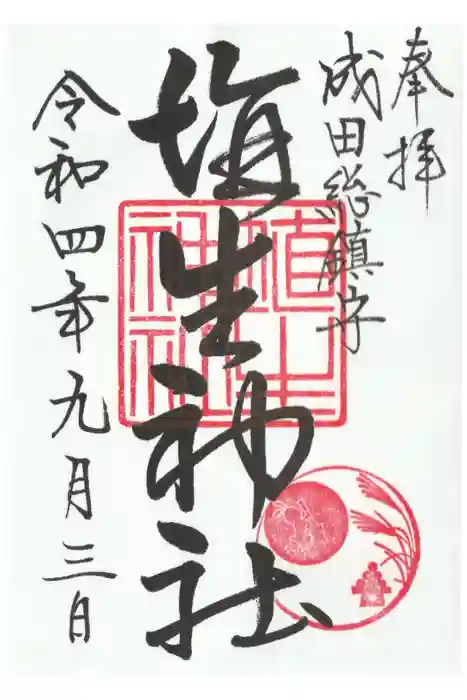 奉拝
成田総鎮守
埴生神社
令和四年九月三日
埴生
神社